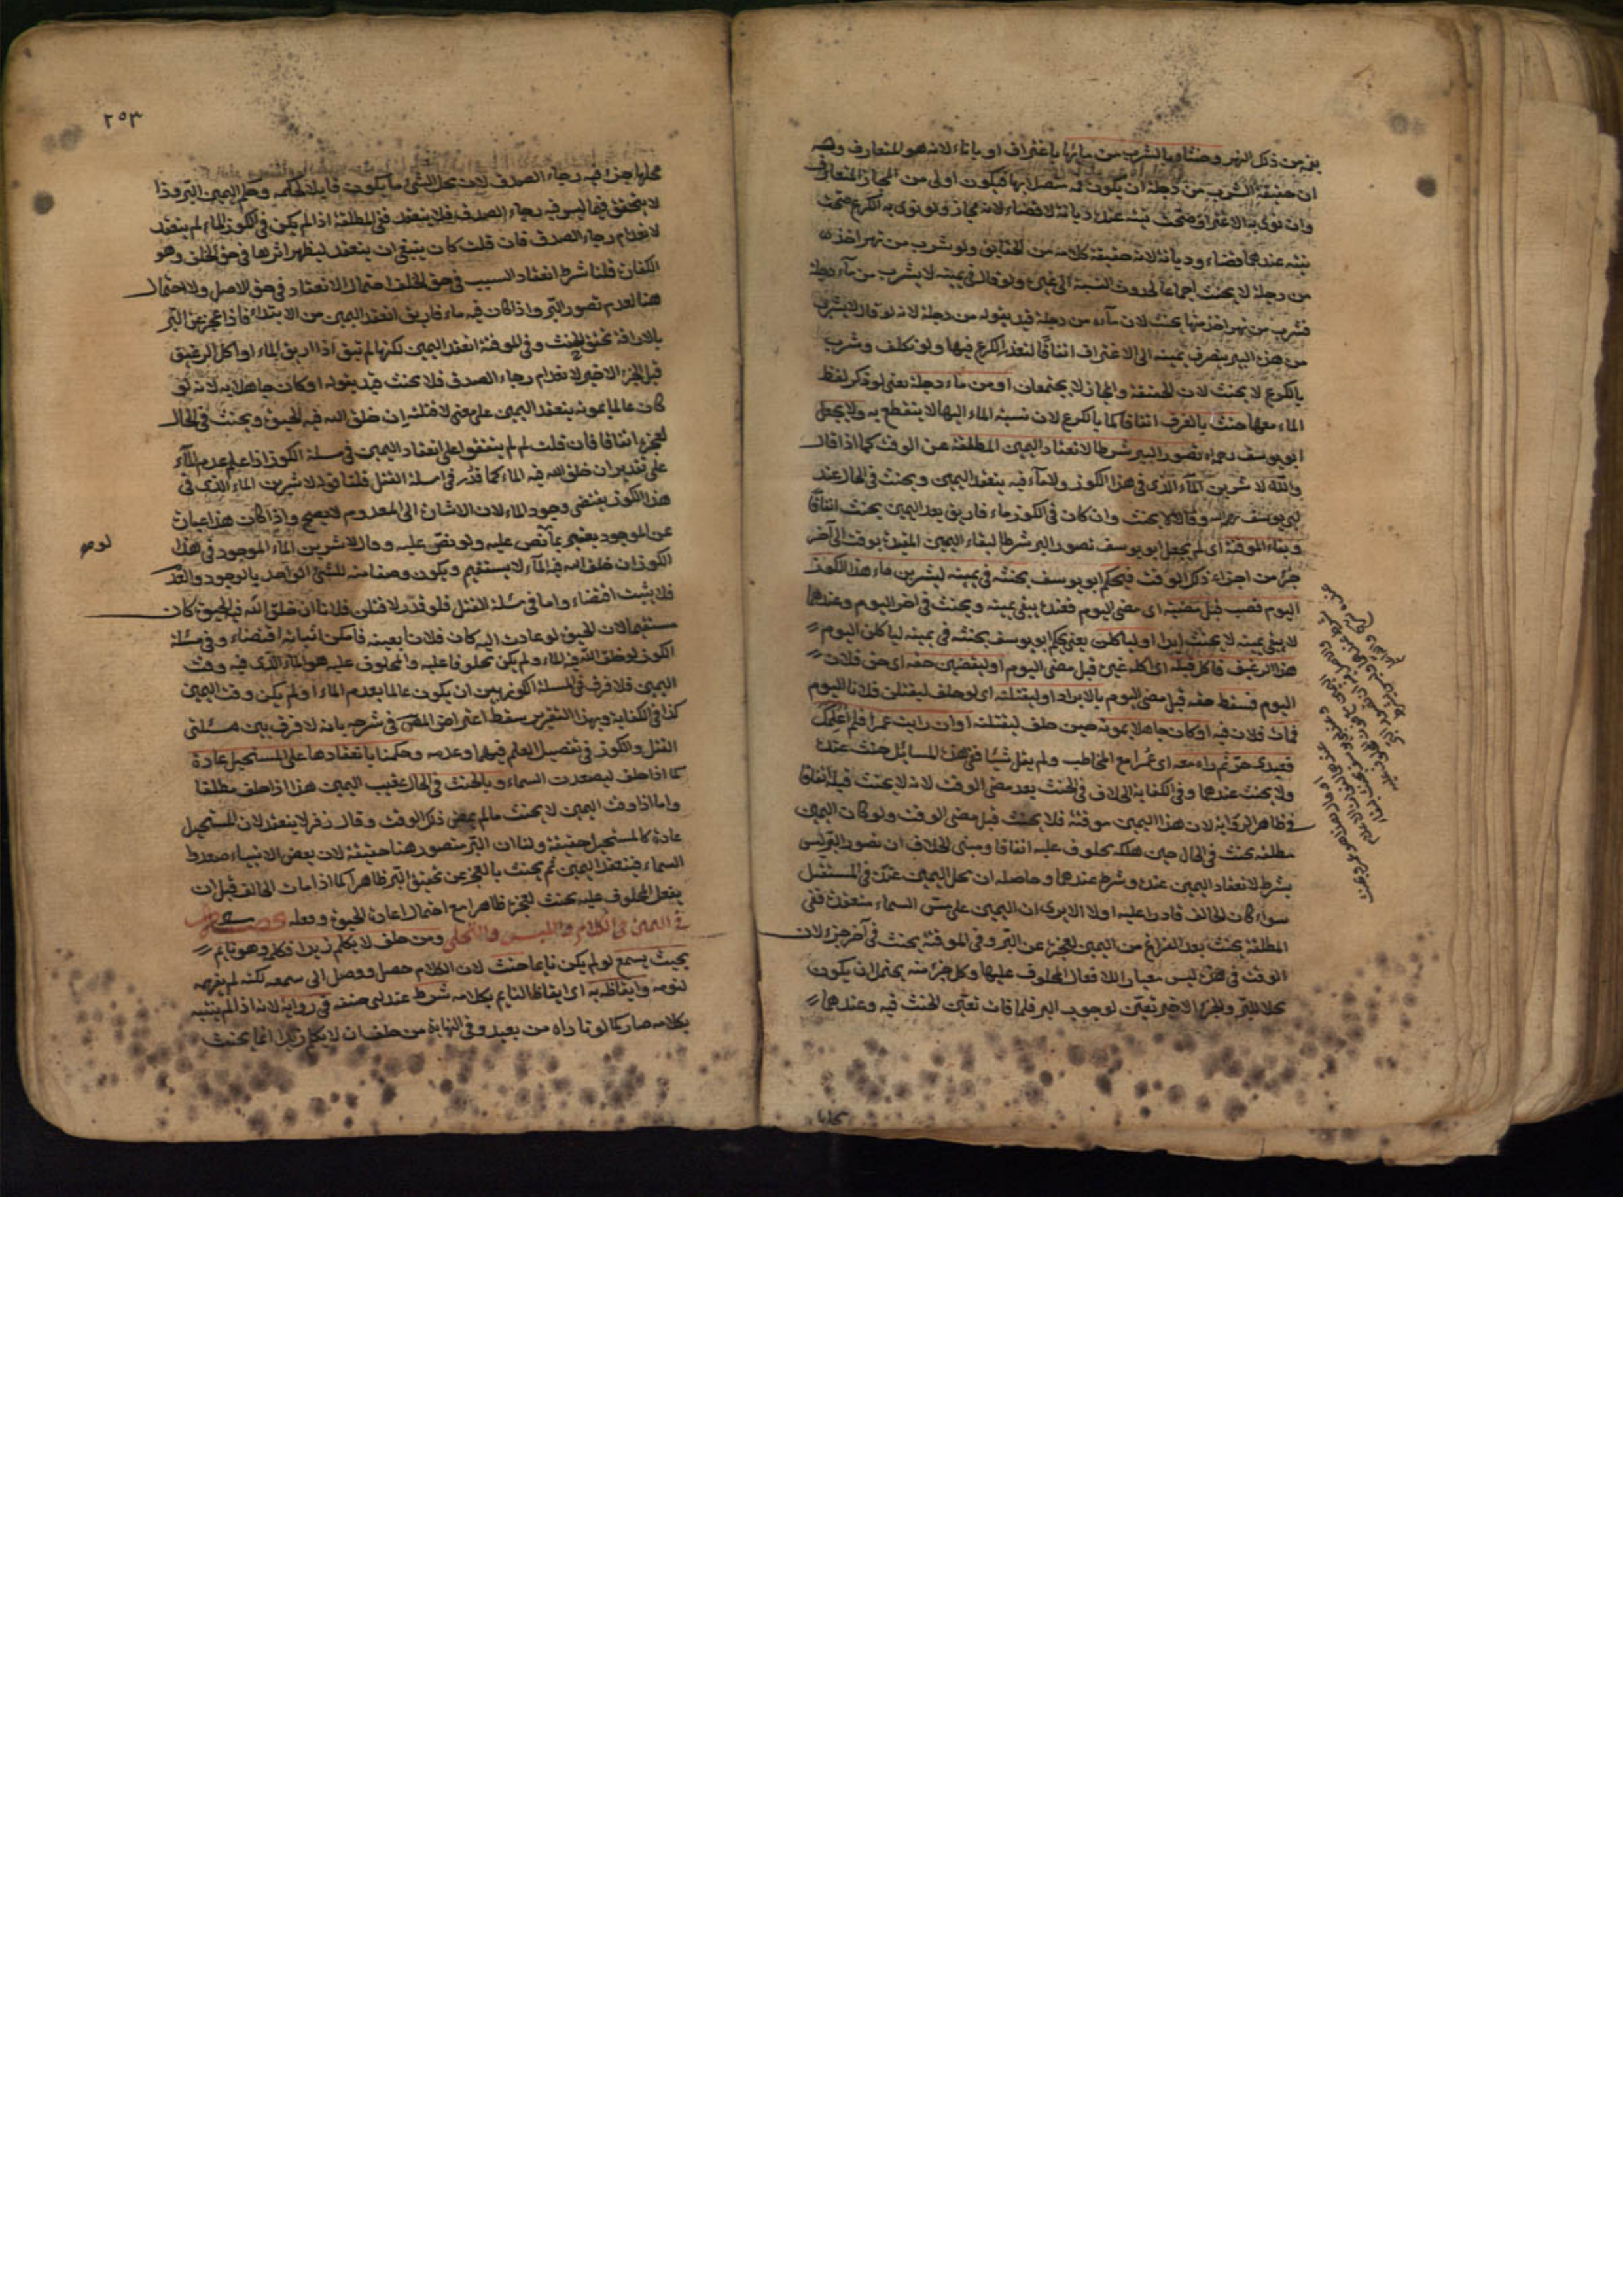 بفمه من ذلك النهر وحنثاه بالشرب من مائها باغتراف او باناء لانه هو المتعارف وله
ان حقيقة الشرب من دجلة ان يكون فمه متصلا بها فيكون اولى من المجاز المتعارف
وان نوى به الاغتراف صحت نيته عنده ديانة لا قضاء لانه مجاز ولو نوى به الكرع صحت
نيته عندهما قضاء وديانة لانه حقيقة كلامه من الحقايق ولو شرب من نهر اخذ
من دجلة لا يحنث اجماعا لحدوث النسبة الى غيره ولو قال في يمينه لا يشرب من ماء دجلة
فشرب من نهر اخذ منها يحنث لان ماءه من دجلة قيد بقوله من دجلة لانه لو قال لا يشرب
من هذه البير ينصرف يمينه الى الاغتراف اتفاقا لتعذر الكرع فيها ولو تكلف وشرب
بالكرع لا يحنث لان الحقيقة والمجاز لا يجتمعان او من ماء دجلة يعنى لو ذكر لفظ
الماء معها حنث بالغرف اتفاقا كما بالكرع لان نسبة الماء اليها لا ينقطع به ولا يجعل
ابو يوسف رحمه الله تصور البر شرطا لانعقاد اليمين المطلقة عن الوقت كما اذا قال
والله لاشربن الماء الذى فى هذا الكوز ولا ماء فيه ينعقد اليمين ويحنث فى الحال عند
ابى يوسف رحمه الله وقالا لا يحنث وان كان فى الكوز ماء فاريق بعد اليمين يحنث اتفاقا
وبقاء الموقتة اى لم يجعل ابو يوسف تصور البر شرطا لبقاء اليمين المقيدة بوقت الى آخر
جزء من اجزاء ذلك الوقت فيحكم ابو يوسف بحنثه فى يمينه ليشربن ماء هذا الكوز
اليوم فصب قبل مضيه اى مضى اليوم فعنده يبقى يمينه ويحنث فى اخر اليوم وعندهما
لا يبقى يمينه لا يحنث ابدا او لياكلن يعنى يحكم ابو يوسف بحنثه فى يمينه لياكلن اليوم
هذا الرغيف فاكل قبله اى اكله غيره قبل مضى اليوم او ليقضين حقه اى حق فلان
اليوم فسقط حقه قبل مضى اليوم بالابراء او ليقتلنه اى لو حلف ليقتلن فلانا اليوم
فمات فلان فيه او كان جاهلا بموته حين حلف ليقتلنه او ان رايت عمرا فلم اعلمك
فعبدى حر ثم راه معه اى عمرا مع المخاطب ولم يقل شيئا ففى هذه المسائل حنث عنده
ولا يحنث عندهما وفى الكفاية الخلاف فى الحنث بعد مضى الوقت لانه لا يحنث قبله اتفاقا
فى ظاهر الرواية لان هذا اليمين موقتة فلا يحنث قبل مضى الوقت ولو كان اليمين
مطلقة يحنث فى الحال حين هلكه محلوف عليه اتفاقا ومبنى الخلاف ان تصور البر ليس
بشرط لانعقاد اليمين عنده وشرط عندهما وحاصله ان محل اليمين عنده فى المستقبل
سواء كان الحالف قادرا عليه او لا الا يرى ان اليمين على مس السماء منعقدة ففى
المطلقة يحنث بعد الفراغ من اليمين لعجزه عن البر وفى الموقتة يحنث فى آخر جزء لان
الوقت فى هذه ليس معيارا للافعال المحلوف عليها وكل جزء منه يحتمل ان يكون
محلا للبر والجزء الاخير تعين لوجوب البر فلما فات تعين الحنث فيه وعندهما
محلها
٢٥٣
محلها خبر فيه رجاء الصدق لان محل الشئ ما يكون قابلا لحكمه وحكم اليمين البر وذا
لا يتحقق فيما ليس فيه رجاء الصدق فلا ينعقد ففى المطلقة اذا لم يكن فى الكوز الماء لم ينعقد
لانعدام رجاء الصدق فان قلت كان ينبغى ان ينعقد ليظهر اثرها فى حق الخلف وهو
الكفارة قلنا شرط انعقاد السبب فى حق الخلف احتمال الانعقاد فى حق الاصل ولا احتمال
هنا لعدم تصور البر واذا كان فيه ماء فاريق انعقد اليمين من الابتداء فاذا عجز عن البر
بالاراقة تحقق الحنث وفى الموقتة انعقد اليمين لكنها لم تبق اذا اريق الماء او اكل الرغيف
قبل الجزء الاخير لانعدام رجاء الصدق فلا يحنث قيد بقوله او كان جاهلا به لانه لو
كان عالما بموته ينعقد اليمين على معنى لاقتلنه ان خلق الله فيه الحيوة ويحنث فى الحال
لعجزه اتفاقا فان قلت لم لم يتفقوا على انعقاد اليمين فى مسئلة الكوز اذا علم عدم الماء
على تقدير ان خلق الله فيه الماء كما قدر فى مسئلة القتل قلنا قوله لاشربن الماء الذى فى
هذا الكوز يقتضى وجود الماء لان الاشارة الى المعدوم لا يصح واذا كان هذا عبارة
عن الموجود يعتبر بما نص عليه ولو نص عليه وقال لاشربن الماء الموجود فى هذا
الكوز ان خلق الله فيه الماء لا يستقيم ويكون وصفا منه للشئ الواحد بالوجود والعدم
فلا يثبت اقتضاء واما فى مسئلة القتل فلو قدر لاقتلن فلانا ان خلق الله فيه الحيوة كان
مستقيما لان الحيوة لو عادت اليه كان فلانا بعينه فامكن اثباته اقتضاء وفى مسئلة
الكوز لو خلق الله فيه الماء ولم يكن محلوفا عليه والمحلوف عليه هو الماء الذى فيه وقت
اليمين فلا فرق فى مسئلة الكوز بين ان يكون عالما بعدم الماء او لم يكن وقت اليمين
كذا فى الكفاية وبهذا التقرير سقط اعتراض المص فى شرحه بانه لا فرق بين مسئلتى
القتل والكوز فى تفصيل العلم فيهما وعدمه وحكمنا بانعقادها على المستحيل عادة
كما اذا حلف ليصعدن السماء وبالحنث فى الحال عقيب اليمين هذا اذا حلف مطلقا
واما اذا وقت اليمين لا يحنث مالم يمض ذلك الوقت وقال زفر لا ينعقد لان المستحيل
عادة كالمستحيل حقيقة ولنا ان البر متصور هنا حقيقة لان بعض الانبياء صعد
السماء فينعقد اليمين ثم يحنث بالعجز عن تحقيق البر ظاهرا كما اذا مات الحالف قبل ان
يفعل المحلوف عليه يحنث لعجزه ظاهرا مع احتمال اعادة الحيوة وفعله فصل
فى اليمين فى الكلام واللبس والتحلى ومن حلف لا يكلم زيدا فكلمه وهو نايم
بحيث يسمع لو لم يكن نايما حنث لان الكلام حصل ووصل الى سمعه لكنه لم يفهمه
لنومه وايقاظه به اى ايقاظ النايم بكلامه شرط عند ابى حنيفة فى رواية لانه اذا لم ينتبه
بكلامه صار كما لو ناداه من بعيد وفى النهاية من حلف ان لا يكلم زيدا انما يحنث